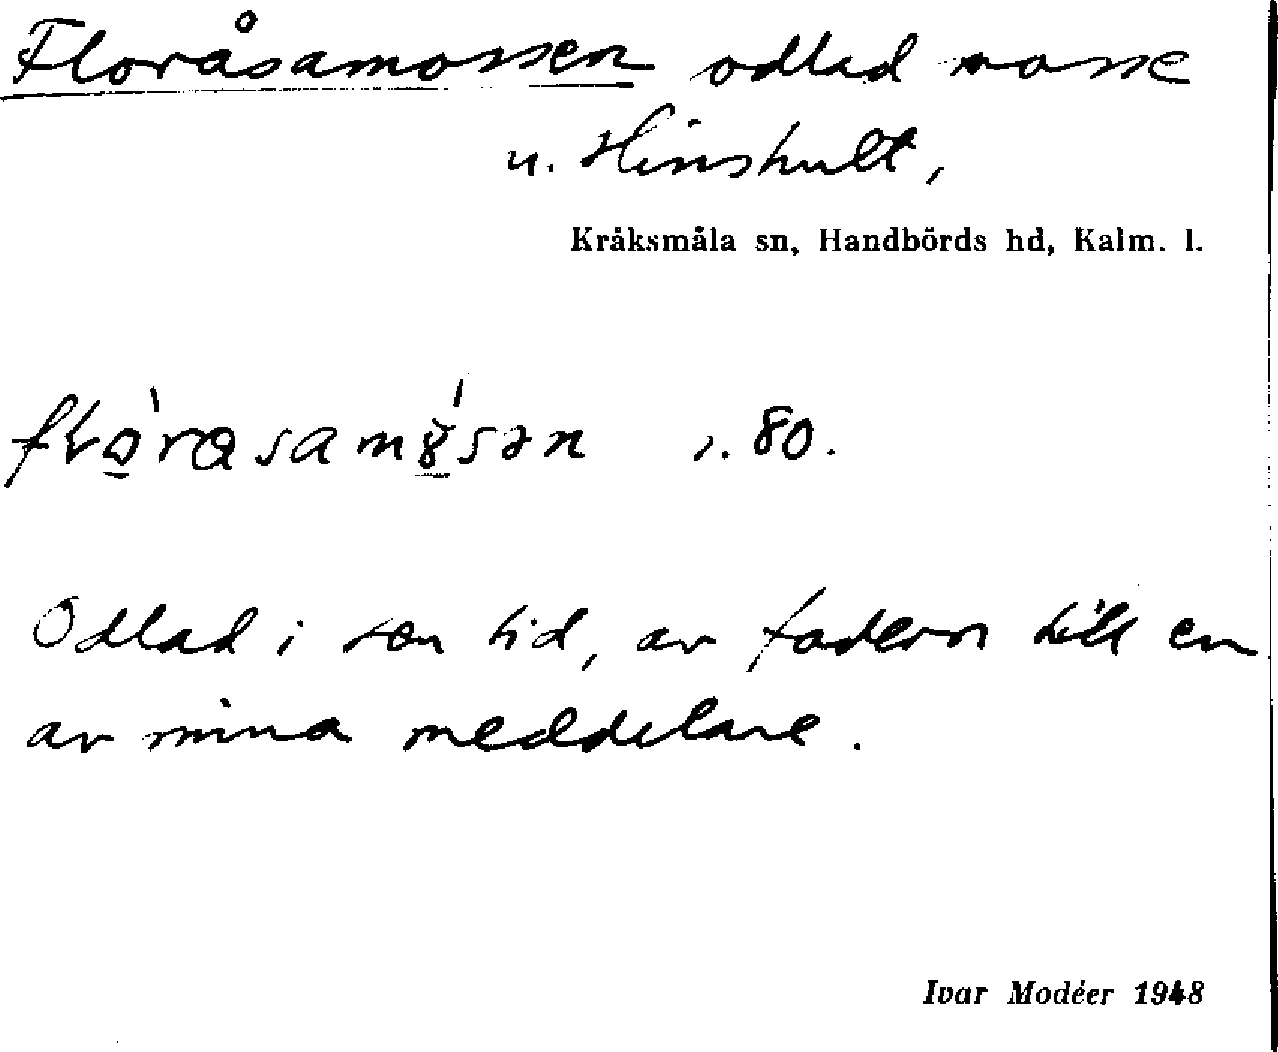 Floråsamossen odlad mosse
u. Hinshult,
Kråksmåla sn, Handbörds hd, Kalm. l.
s. 80.
Odlad i sen tid, av fadern till en
av mina meddelare.
Ivar Modéer 1948